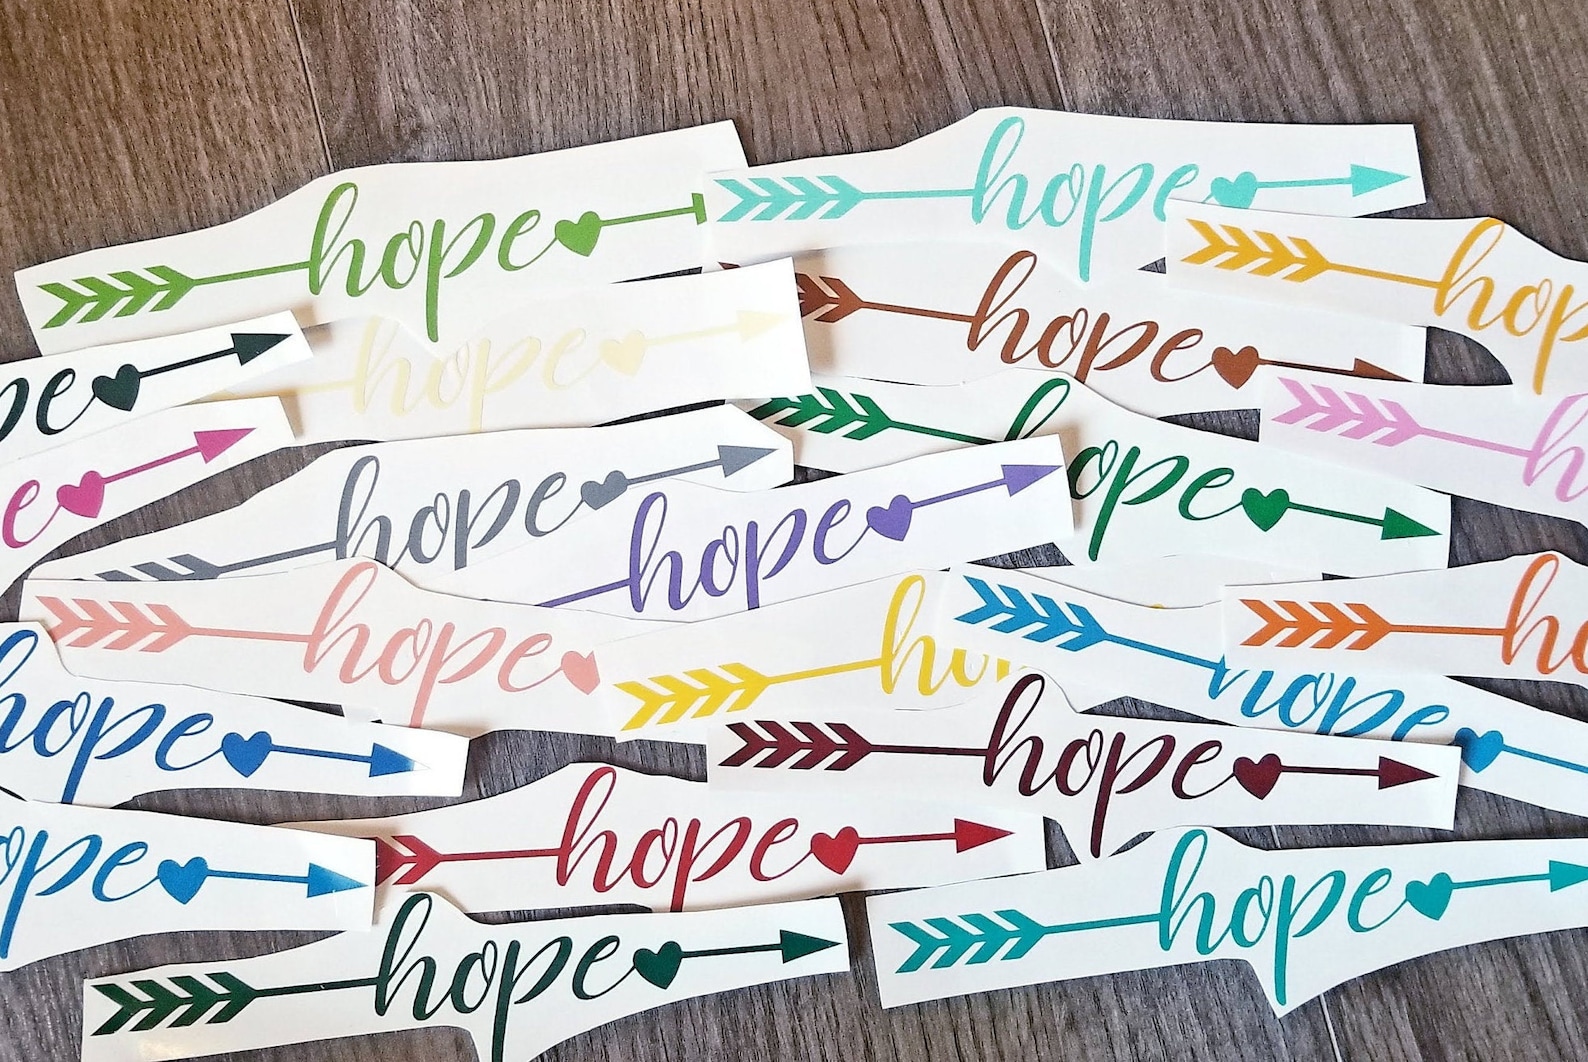 hope
hope
hop
hope
hope
pe
h
hope
e
hope
hope
hope
ho
hope
ho
hope
hope
hope
ope
hope
hope